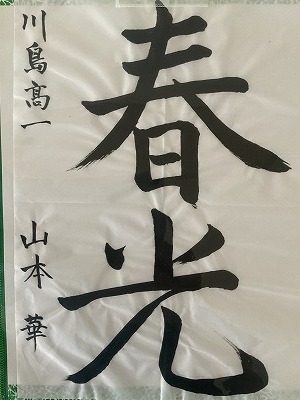 春光
川島高一
山本華